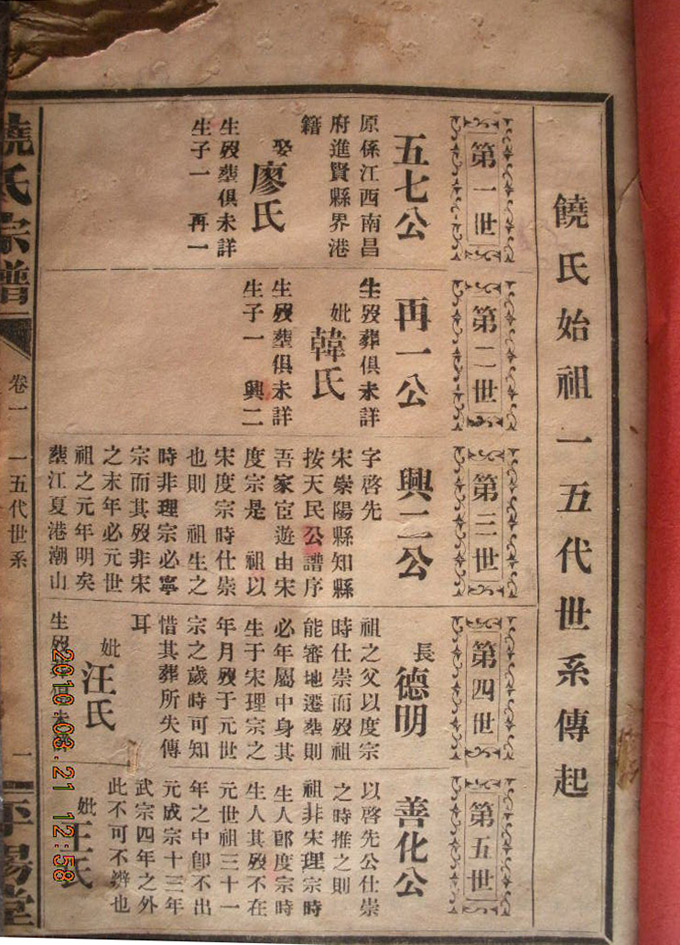 饒氏始祖一五代世系傳起
第一世
五七公
原係江西南昌
府進賢縣界港
籍
娶廖氏
生歿塟俱未詳
生子一 再一
第二世
再一公
生歿葬俱未詳
妣韓氏
生歿塟俱未詳
生子一 興二
第三世
興二公
字啓先
宋崇陽縣知縣
按天民公譜序
吾家宦遊由宋
度宗是 祖以
宋度宗時仕崇
也則 祖生之
時非理宗必寧
宗而其歿非宋
之末年必元世
祖之元年明矣
塟江夏港潮山
第四世
長德明
祖之父以度宗
時仕崇而歿祖
能審地遷塟則
必年屬中身其
生于宋理宗之
年月歿于元世
宗之歲時可知
惜其塟所失傳
耳
妣汪氏
生歿
第五世
善化公
以啓先公仕崇
之時推之則
祖非宋理宗時
生人卽度宗時
生人其歿不在
元世祖三十一
年之中卽不出
元成宗十三年
武宗四年之外
此不可不辨也
妣王氏
饒氏宗譜
卷一
一五代世系
一
平陽堂
2010.03.21 12:58